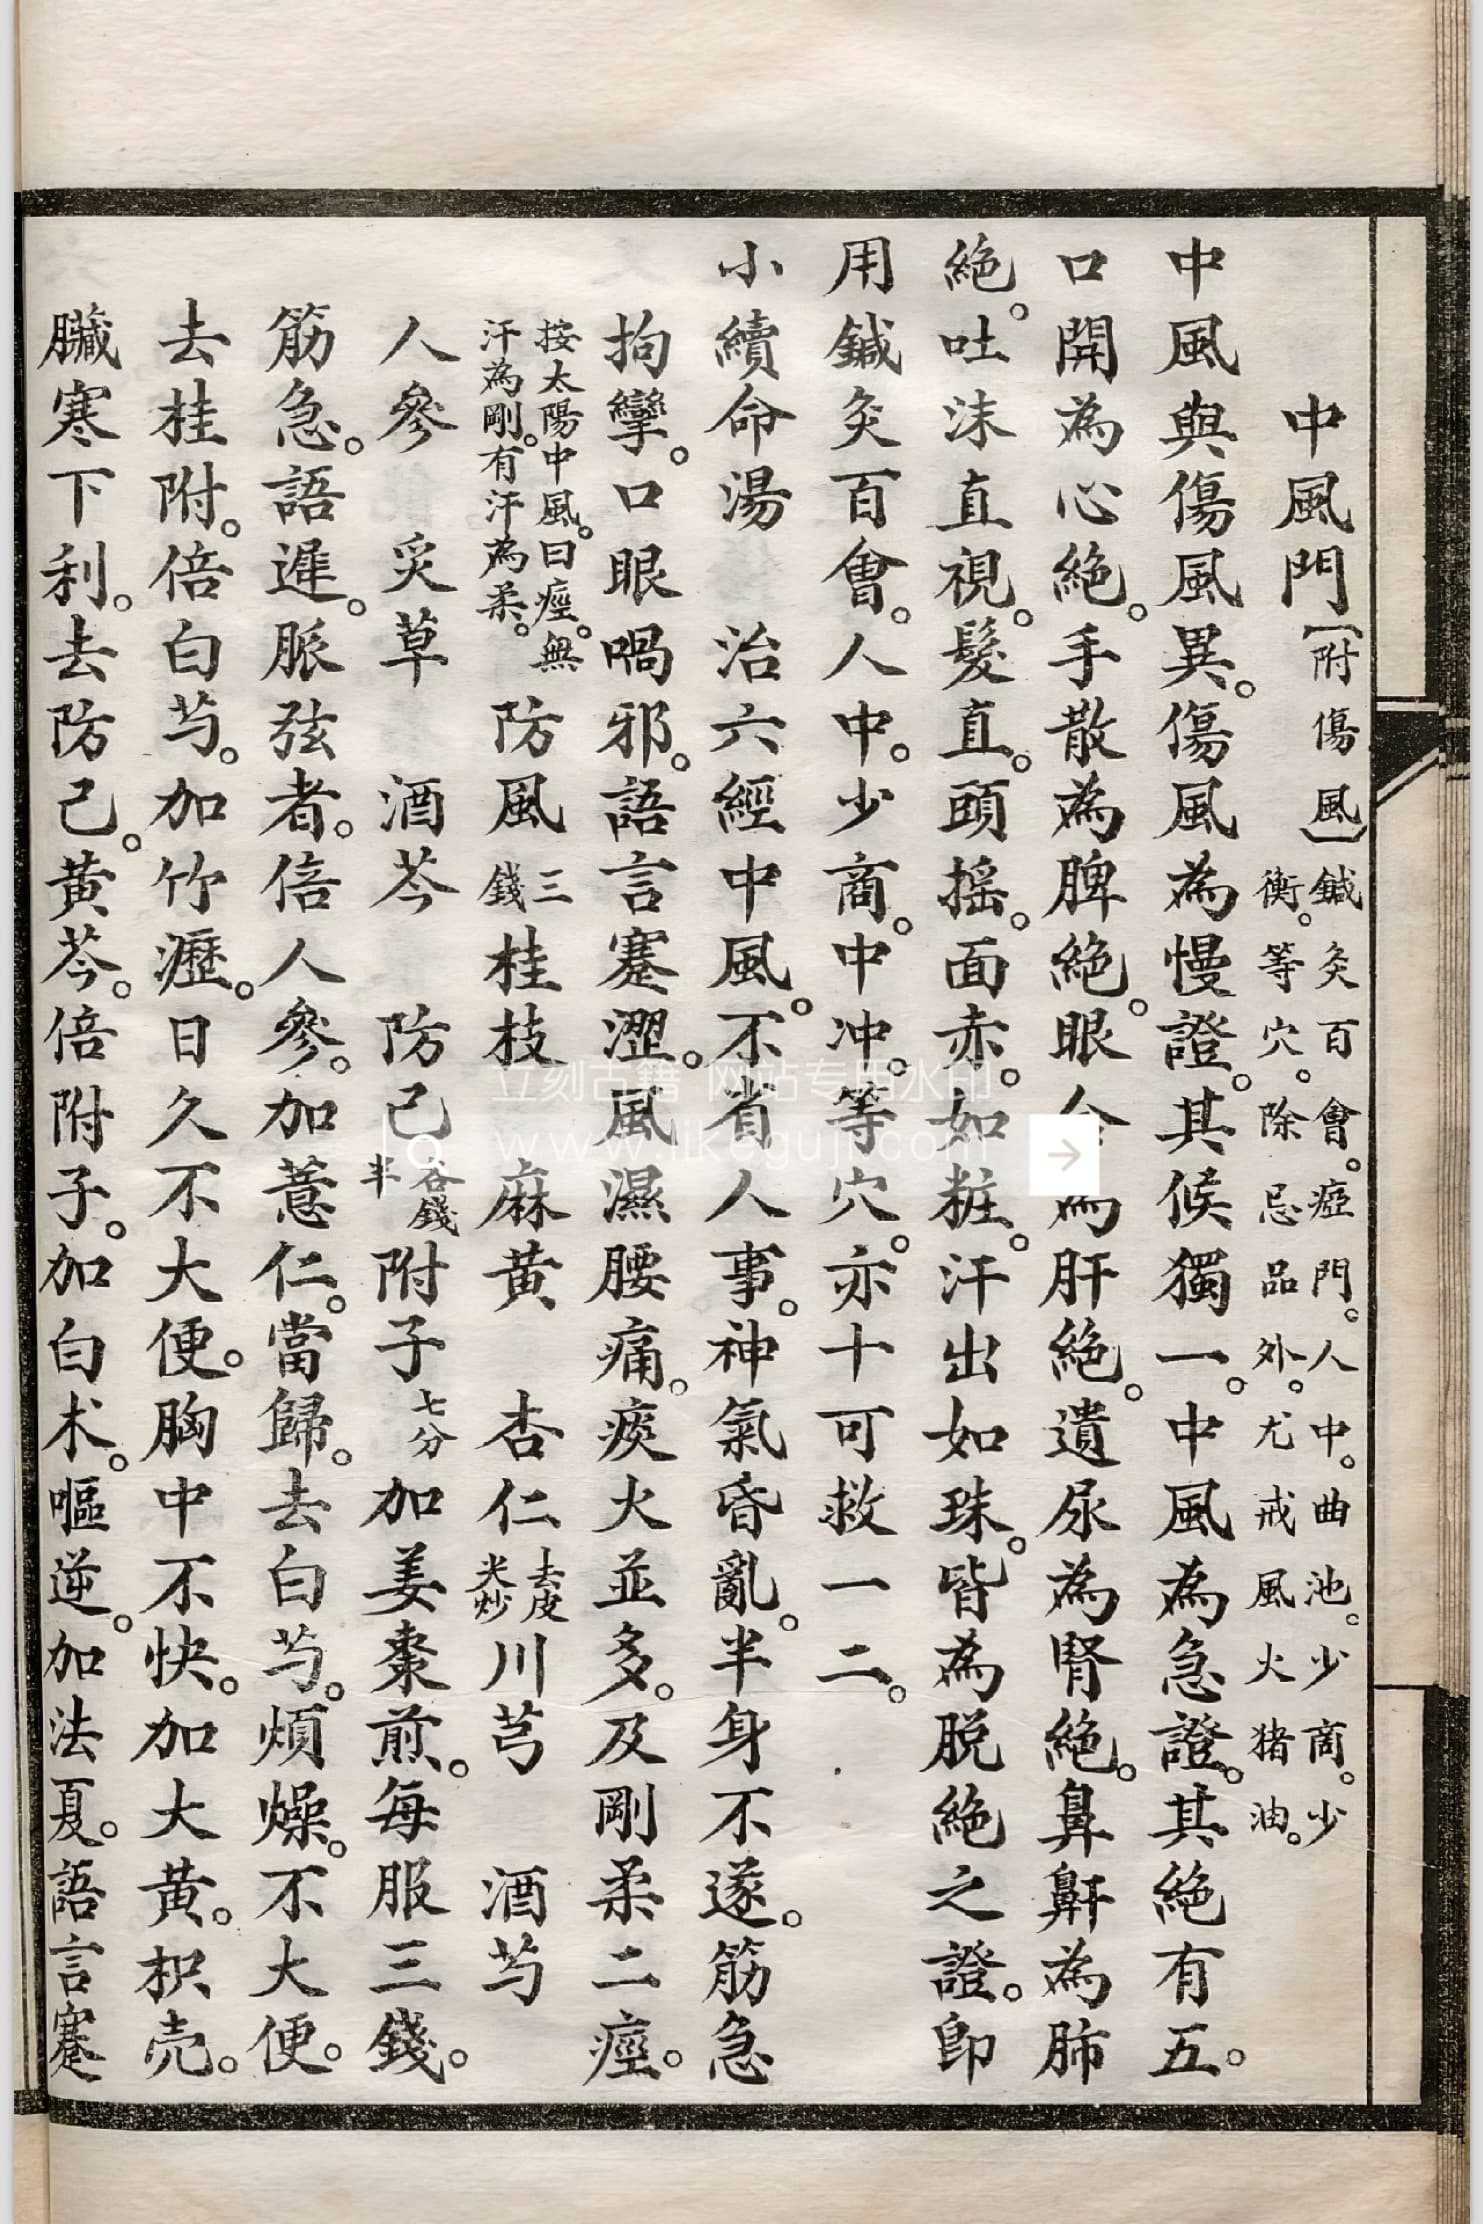 中風門【附傷風】鍼灸百會。瘂門。人中。曲池。少商。少
衡。等穴。除忌品外。尤戒風火猪油。
中風與傷風異。傷風為慢證。其候獨一。中風為急證。其絕有五。
口開為心絕。手散為脾絕。眼合為肝絕。遺尿為腎絕。鼻鼾為肺
絕。吐沫直視。髮直。頭搖。面赤。如粧。汗出如珠。皆為脫絕之證。即
用鍼灸百會。人中。少商。中冲。等穴。亦十可救一二。
小續命湯 治六經中風。不省人事。神氣昏亂。半身不遂。筋急
拘攣。口眼喎邪。語言蹇澀。風濕腰痛。痰火並多。及剛柔二痙。
按太陽中風。曰痙。無
汗為剛。有汗為柔。
防風三錢 桂枝 麻黃 杏仁去皮尖炒 川芎 酒芍
人參 炙草 酒芩 防己各錢半 附子七分 加姜棗煎。每服三錢。
筋急。語遲。脈弦者。倍人參。加薏仁。當歸。去白芍。煩燥。不大便。
去桂附。倍白芍。加竹瀝。日久不大便。胸中不快。加大黃。枳壳。
臟寒下利。去防己。黃芩。倍附子。加白朮。嘔逆。加法夏。語言蹇
立刻古籍 网站专用水印
www.likeguji.com